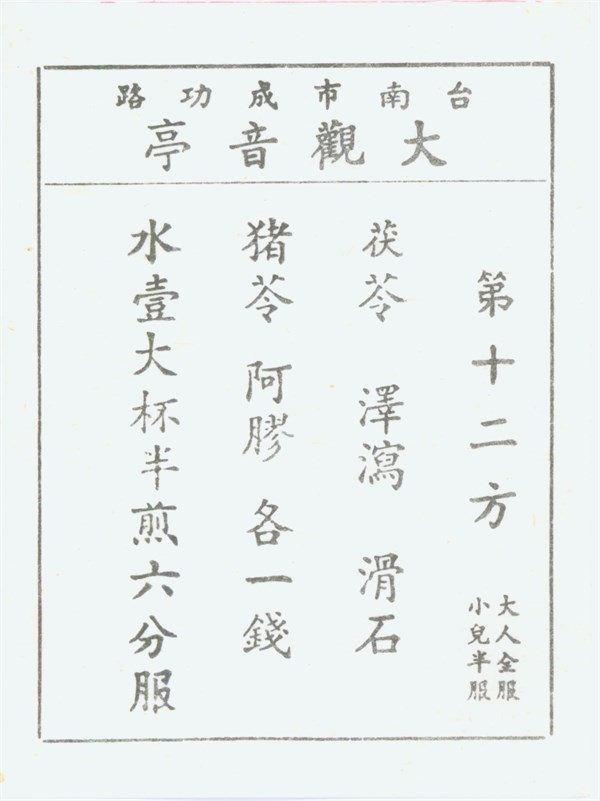 台南市成功路
大觀音亭
第十二方
大人全服
小兒半服
茯苓 澤瀉 滑石
猪苓 阿膠 各一錢
水壹大杯半煎六分服